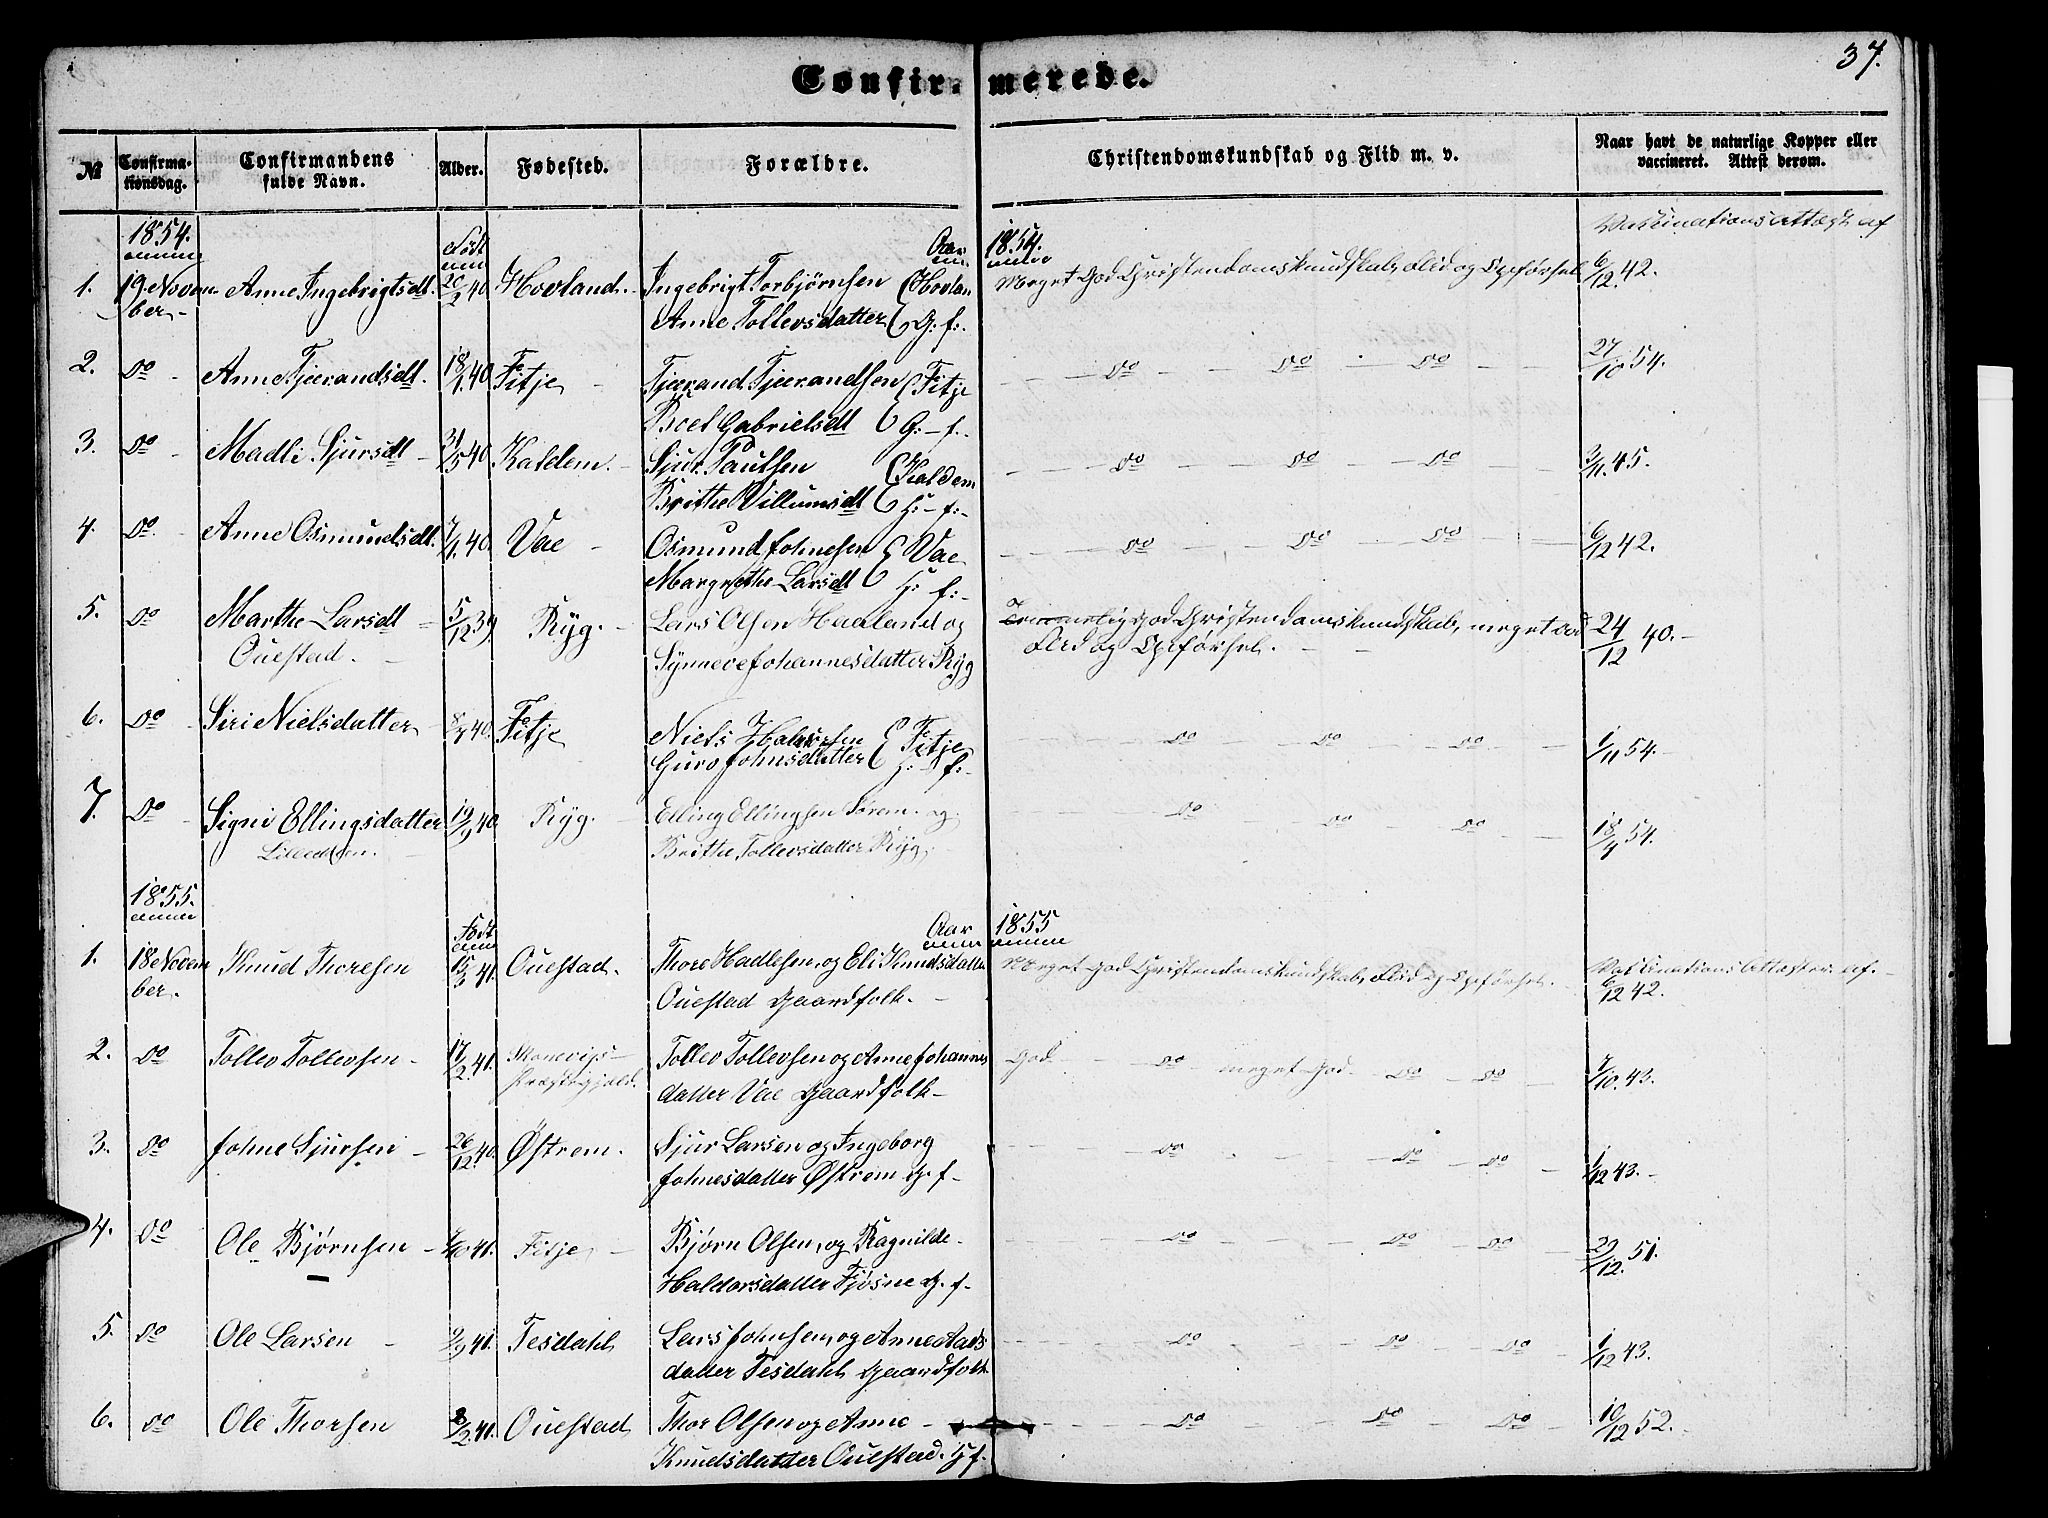 37.
Confirmerede.
№ Confirmationsdag. Confirmandens fulde Navn. Alder. Fødested. Forældre. Christendomskundskab og Flid m. v. Naar havt de naturlige Kopper eller vaccineret. Attest derom.
1854. Født Aar 1854. Vaccinations Attest af
1. 19 November- Anne Ingebrigtsdt. 20/2 40 Hovland. Ingebrigt Torbjørnsen Hovlan Meget God Christendomskundskab, Flid og Opførsel 6/12. 42.
Anne Tollevsdatter G: f:
2. Do Anne Tjerandsdt. 18/1. 40 Fitje Tjerand Tjerandsen Fitje Do Do Do 27/10 54.
Boel Gabrielsdt G: f.
3. Do Madli Sjursdt 31/5 40 Kaldem. Sjur Paulsen Kaldem Do Do Do 3/11. 45.
Brithe Villumsdt H: f:
4. Do. Anne Osmundsdt. 7/1. 40. Vae Osmund Johnesen Vae Do Do Do 6/12 42.
Margrethe Larsdt H: f:
5. Do Marthe Larsdt 5/12 39 Ryg. Lars Olsen Haaland og Temmelig god Christendomskundskab, meget god 24/12 40.
Ouestad. Synneve Johannesdatter Ryg Flid og Opførsel.
6. Do Siri Nielsdatter 8/7 40. Fitje Niels Halvorsen Fitje Do Do Do 1/11 54.
Guro Johnsdatter H: f:
7. Do Signi Ellingsdatter 19/9 40. Ryg. Elling Ellingsen Sørem. og Do Do Do 18/7 54.
Brithe Tollevsdatter Ryg.
1855. Født Aar 1855
1. 18 November. Knud Thoresen 15/3 41. Ouestad. Thore Hadlesen, og Eli Knudsdatter Meget god Christendomskundskab, Flid og Opførsel. Vaccinations Attester af.
Ouestad Gaardfolk. 6/12 42.
2. Do Tollev Tollevsen 17/2. 41. Skonevigs Tollev Tollevsen og Anne Johannes god Do meget God Do Do 7/10. 43.
Præstegjeld. datter Vae Gaardfolk
3. Do Johne Sjursen 26/12. 40. Østrem. Sjur Larsen og Ingeborg Do Do Do 1/12 43.
Johnesdatter Østrem G. f
4. Do Ole Bjørnsen 7/10 41. Fitje Bjørn Olsen, og Ragnilde Do Do Do 29/12. 51.
Haldorsdatter Fjøsne G. f
5. Do Ole Larsen 9/9 41. Tesdahl Lars Johnsen, og Anne Aads Do Do Do 1/12 43.
datter Tesdahl Gaardfolk
6. Do Ole Thorsen 8/2. 41. Ouestad Thor Olsen og Anne Do Do Do 10/12 52.
Knudsdatter Ouestad. H f.